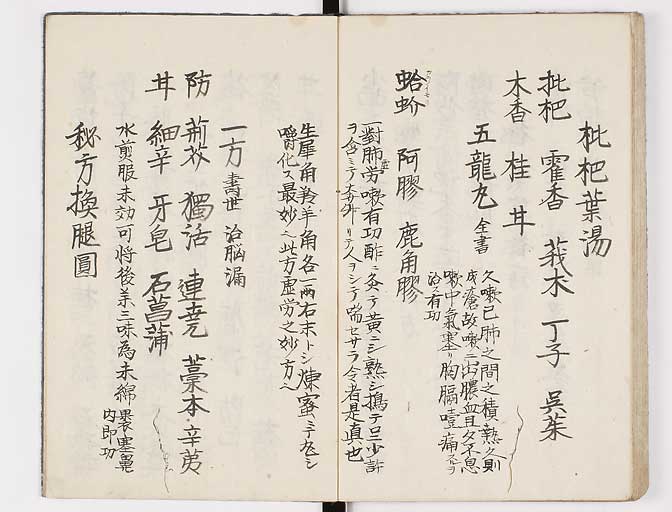 枇杷葉湯
枇杷 霍香 莪木 丁子 呉茱
木香 桂 甘
五龍丸 全書
久嗽已肺之間之積熱久則
成瘡故嗽ニ出膿血且夕不息
嗽中氣塞リ胸膈噎痛スルヲ
治ス有功
蛤蚧 阿膠 鹿角膠
一對肺労嗽有功酢ニ炙テ黄ニシ熟シ搗テ
人ヲシテ喘セサラ令者是真也
生犀角羚羊角各一兩右末トシ煉蜜ニテ丸シ
嚼化ス最妙ヘ此方虚労之妙方ヘ
一方 壽世 治脳漏
防 荊芥 獨活 連尭 藁本 辛夷
甘 細辛 牙皂 石菖蒲
水煎服未効可將後美三味為末綿裹塞鼻
内即功
秘方換腿圓